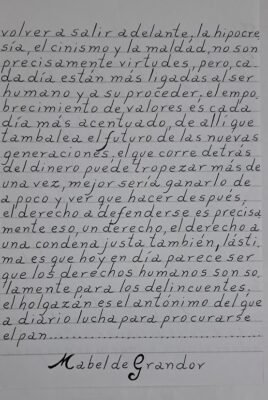 volver a salir adelante, la hipocre
sía, el cinismo y la maldad, no son
precisamente virtudes, pero, ca
da día están más ligadas al ser
humano y a su proceder; el empo
brecimiento de valores es cada
día más acentuado, de allí que
tambalea el futuro de las nuevas
generaciones, el que corre detrás
del dinero puede tropezar más de
una vez, mejor sería ganarlo de
a poco y ver que hacer después;
el derecho a defenderse es precisa
mente eso, un derecho, el derecho a
una condena justa también, lásti
ma es que hoy en día parece ser
que los derechos humanos son so
lamente para los delincuentes;
el holgazán es el antónimo del que
a diario lucha para procurarse
el pan......................................
Mabel de Grandov